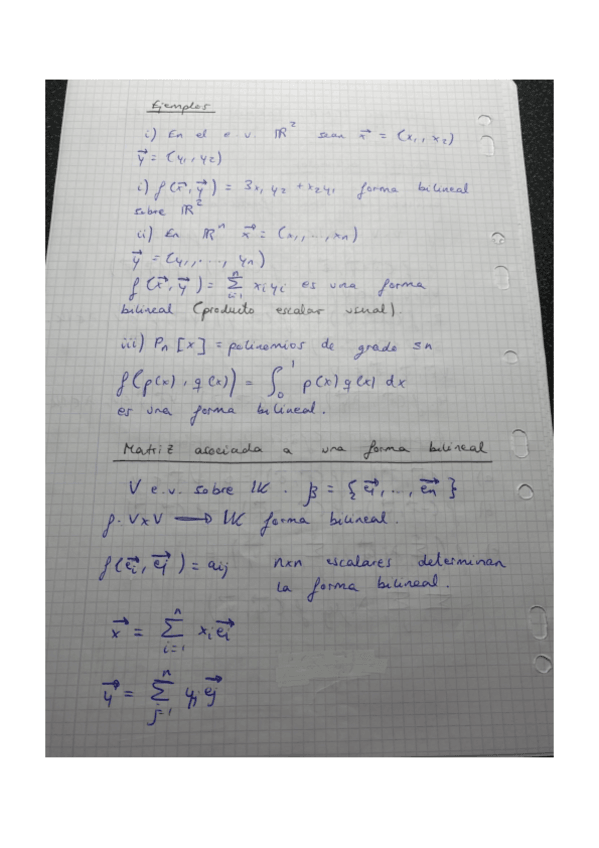 Ejemplos
i) En el e.v. ℝ² sean x⃗ = (x₁, x₂)
y⃗ = (y₁, y₂)
i) f(x⃗, y⃗) = 3x₁y₂ + x₂y₁ forma bilineal
sobre ℝ²
ii) En ℝⁿ x⃗ = (x₁, ..., xn)
y⃗ = (y₁, ..., yn)
f(x⃗, y⃗) = ∑ᵢ₌₁ⁿ xᵢyᵢ es una forma
bilineal (producto escalar usual).
iii) Pn[x] = polinomios de grado ≤n
f(p(x), q(x)) = ∫₀¹ p(x)q(x) dx
es una forma bilineal.
Matriz asociada a una forma bilineal
V e.v. sobre 𝕂. β = {e₁⃗, ..., en⃗}
f. V×V → 𝕂 forma bilineal.
f(eᵢ⃗, eⱼ⃗) = aij n×n escalares determinan
la forma bilineal.
x⃗ = ∑ᵢ₌₁ⁿ xᵢeᵢ⃗
y⃗ = ∑ⱼ₌₁ⁿ yⱼeⱼ⃗